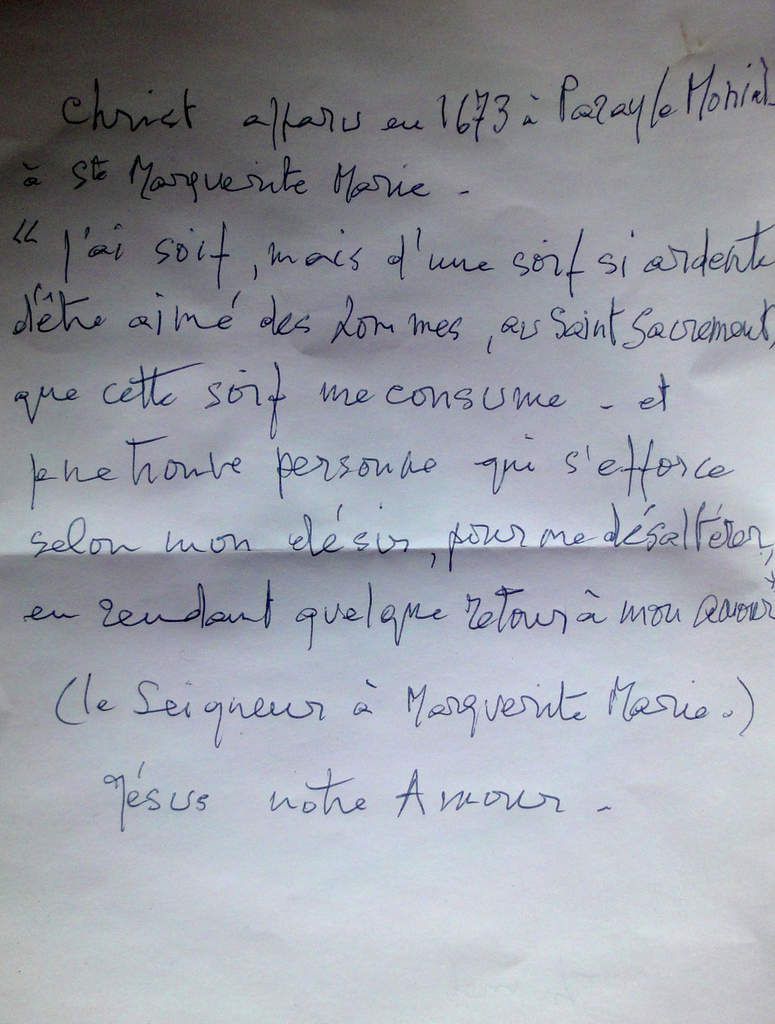 Christ apparu en 1673 à Paray le Monial
à Ste Marguerite Marie -
“ J'ai soif, mais d'une soif si ardente
d'être aimé des hommes, au Saint Sacrement,
que cette soif me consume - et
je ne trouve personne qui s'efforce
selon mon désir, pour me désaltérer,
en rendant quelque retour à mon amour
(le Seigneur à Marguerite Marie.)
Jésus notre Amour -